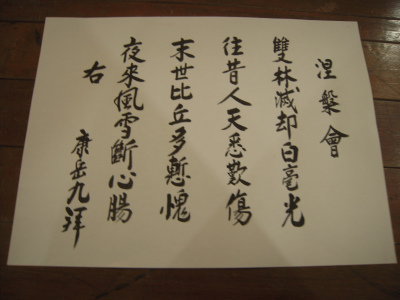 涅槃會
雙林滅却白毫光
往昔人天悉歎傷
末世比丘多慙愧
夜来風雪斷心腸
右
康岳九拜